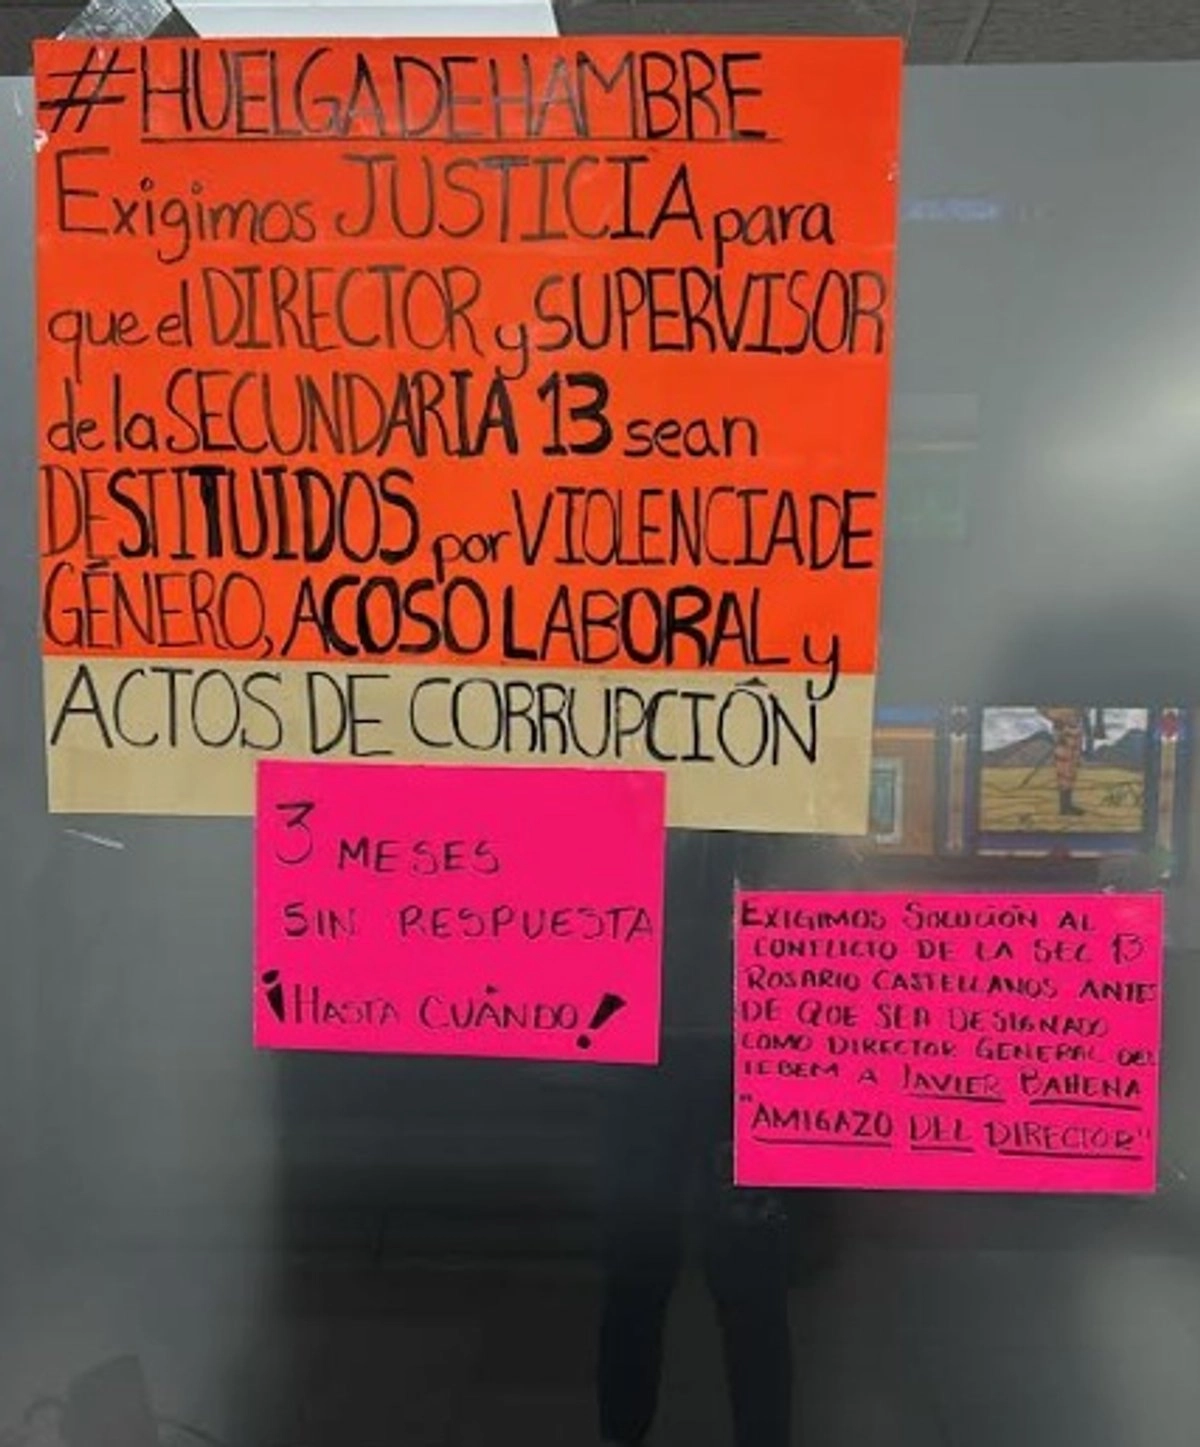 #HUELGADEHAMBRE
Exigimos JUSTICIA para
que el DIRECTOR y SUPERVISOR
de la SECUNDARIA 13 sean
DESTITUIDOS por VIOLENCIA DE
GÉNERO, ACOSO LABORAL y
ACTOS DE CORRUPCIÓN
3 MESES
SIN RESPUESTA
¡HASTA CUÁNDO!
EXIGIMOS SOLUCIÓN AL
CONFLICTO DE LA SEC 13
ROSARIO CASTELLANOS ANTES
DE QUE SEA DESIGNADO
COMO DIRECTOR GENERAL DEL
IEBEM A JAVIER BAHENA
"AMIGAZO DEL DIRECTOR"